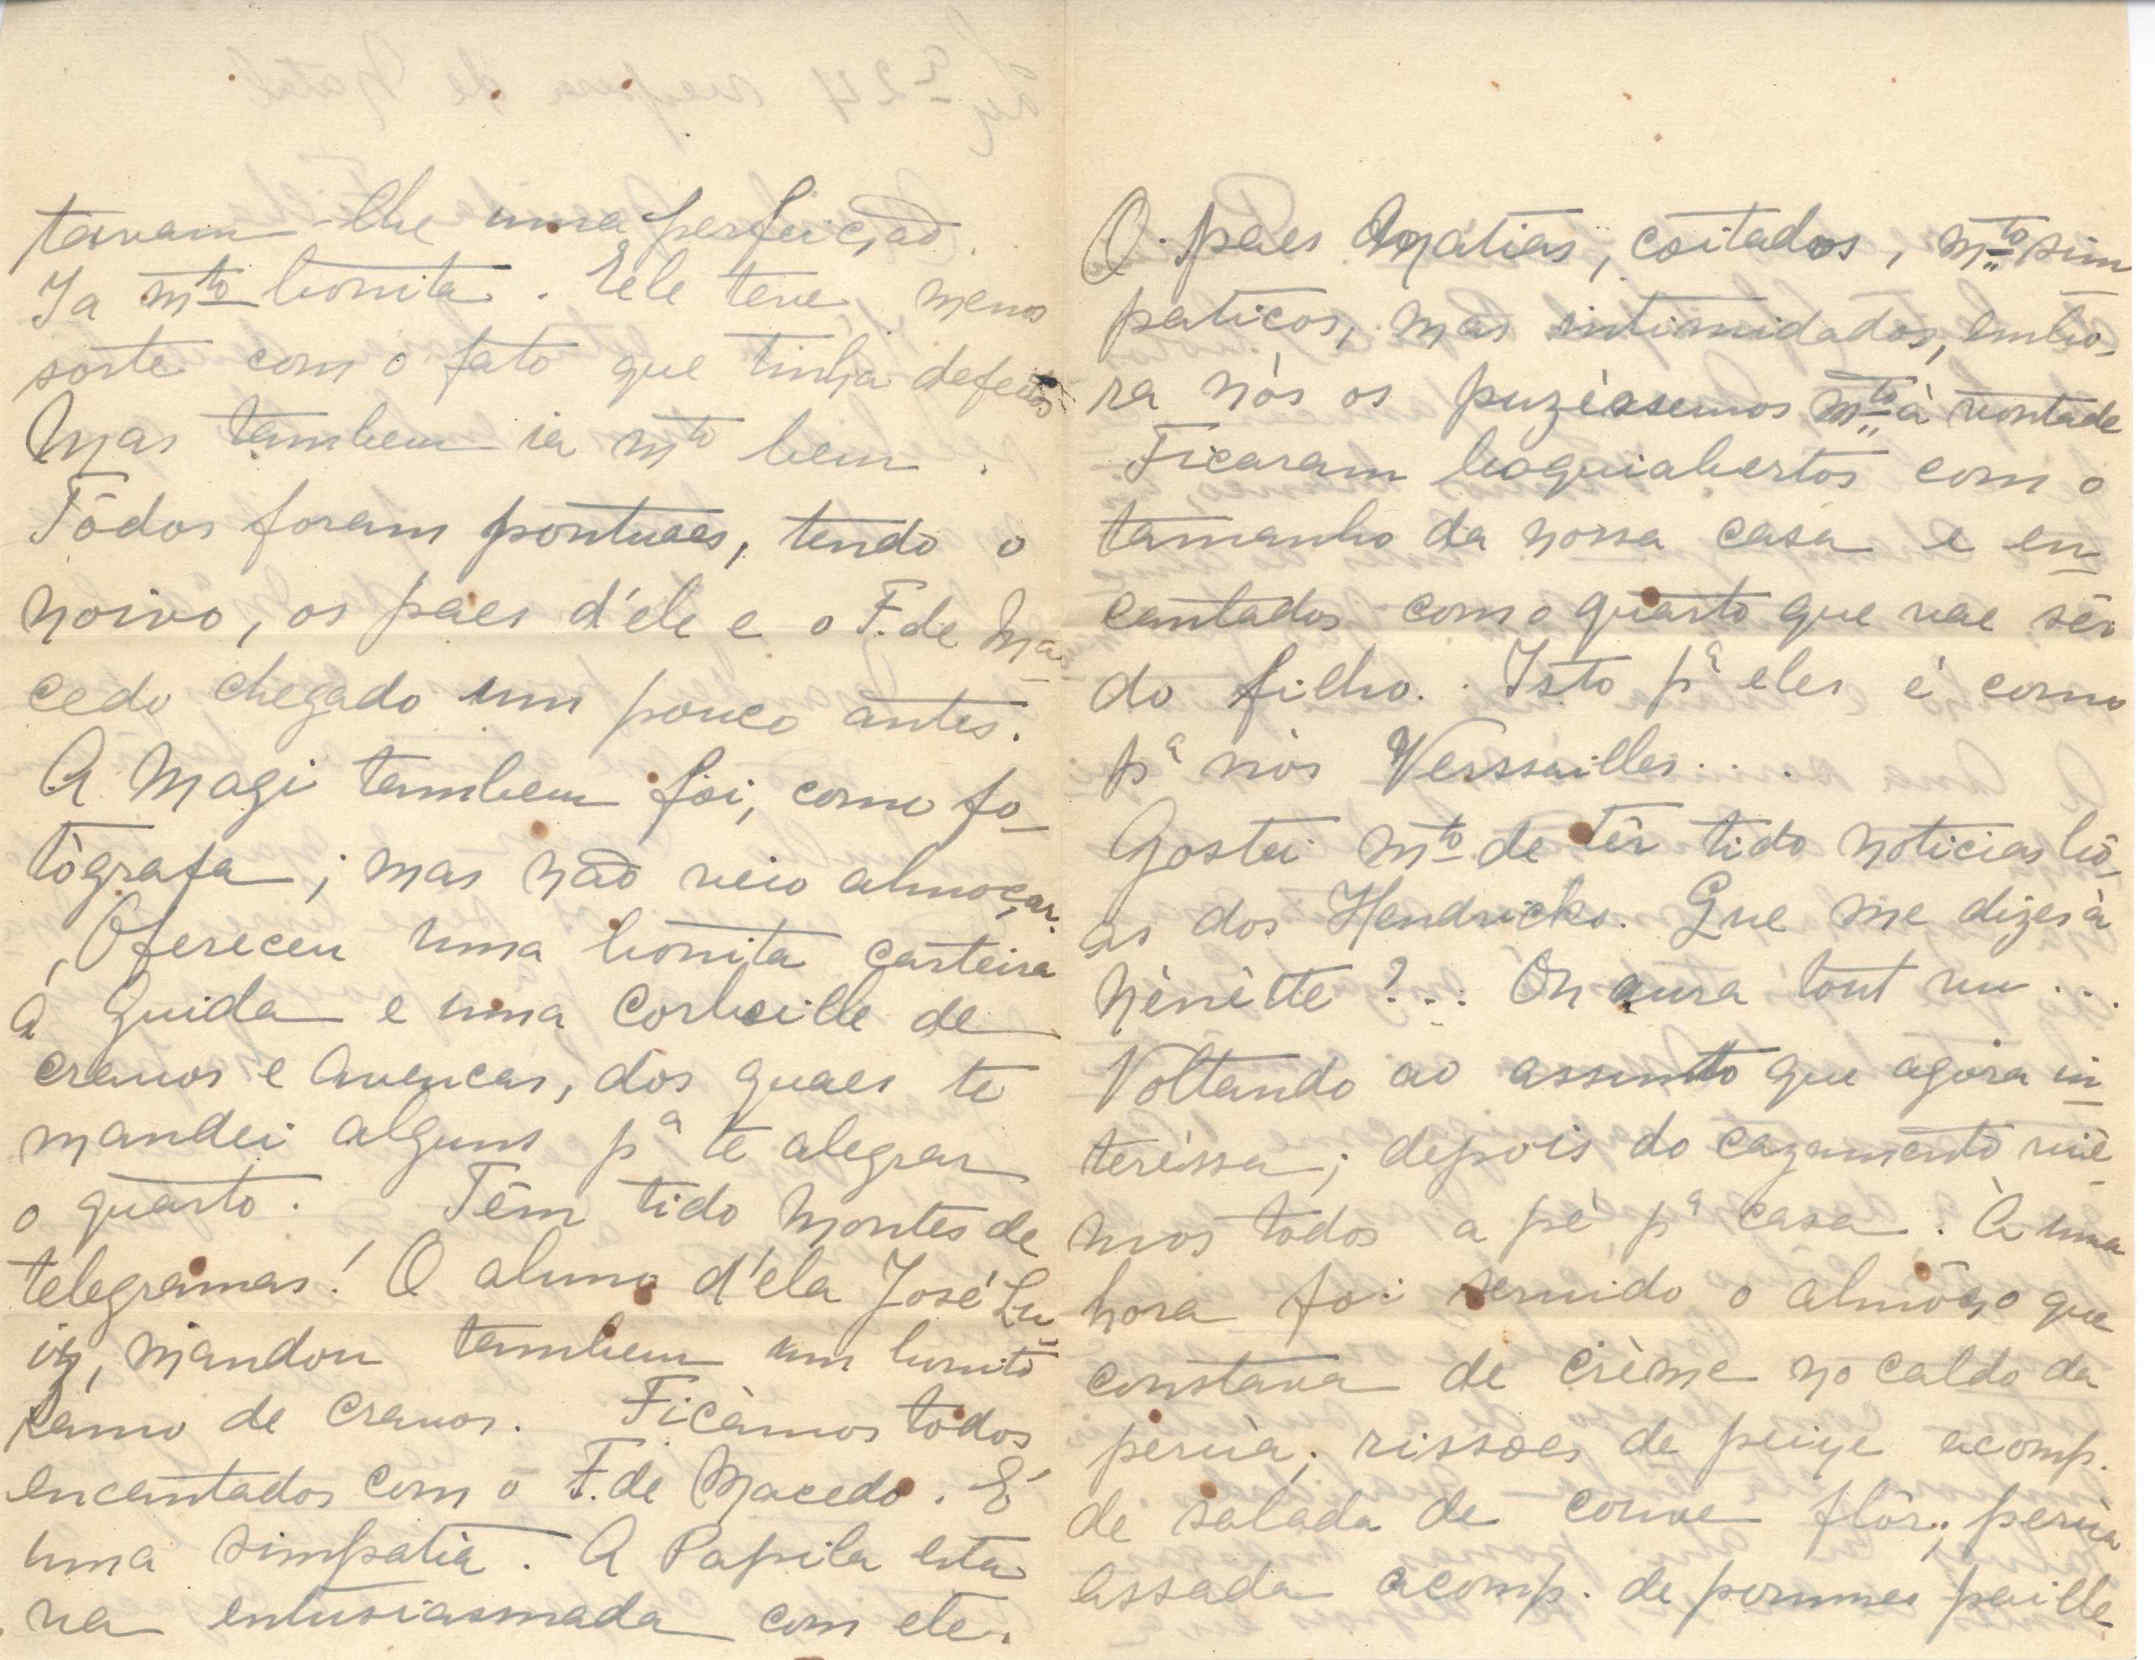 tavam-lhe uma perfeição.
Ia mto bonita. Ele teve menos
sorte com o fato que tinha defeitos
Mas tambem ia mto bem.
Tôdos foram pontuaes, tendo o
noivo, os paes d'ele e o F. de Ma-
cedo chegado um pouco antes.
A Magi tambem foi, como fo-
tògrafa; mas não veio almoçar.
Ofereceu uma bonita carteira
á Guida e uma corbeille de
cravos e avencas, dos quaes te
mandei alguns pª te alegrar
o quarto. Têm tido montes de
telegramas! O aluno d'ela José Lu-
iz, mandou tambem um bonito
ramo de cravos. Ficàmos todos
encantados com o F. de Macedo. É
uma simpatia. A Papila esta-
va entusiasmada com ele.
O paes Matias, coitados, mto sim
paticos, mas intimidados, embo-
ra nós os puzéssemos mto à vontade
Ficaram boquiabertos com o
tamanho da nossa casa e en-
cantados com o quarto que vae sêr
do filho. Isto pª eles é como
pª nós Verssailles...
Gostei mto de têr tido noticias bô-
as dos Hendricks. Que me dizes à
Nènètte?... On aura tout vu...
Voltando ao assunto que agora in-
teréssa; depois do cazamento viè-
mos todos a pé pª casa. À uma
hora foi servido o almôço que
constava de crème no caldo da
perúa; rissoes de peixe acomp.
de salada de couve flôr; perúa
assada acomp. de pommes paille